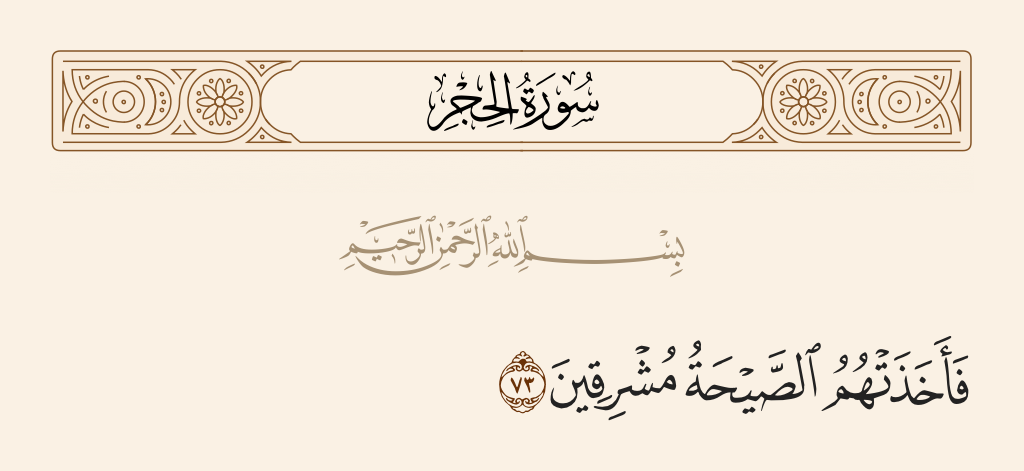 سُورَةُ الحِجْرِ
بِسْمِ ٱللَّهِ ٱلرَّحْمَٰنِ ٱلرَّحِيمِ
فَأَخَذَتْهُمُ ٱلصَّيْحَةُ مُشْرِقِينَ ٧٣